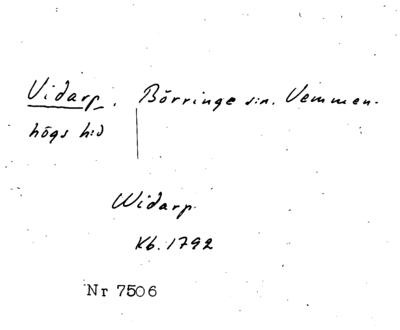 Vidarp. Börringe s:n. Vemmen-
högs h:d
Widarp
Kb. 1792
Nr 7506